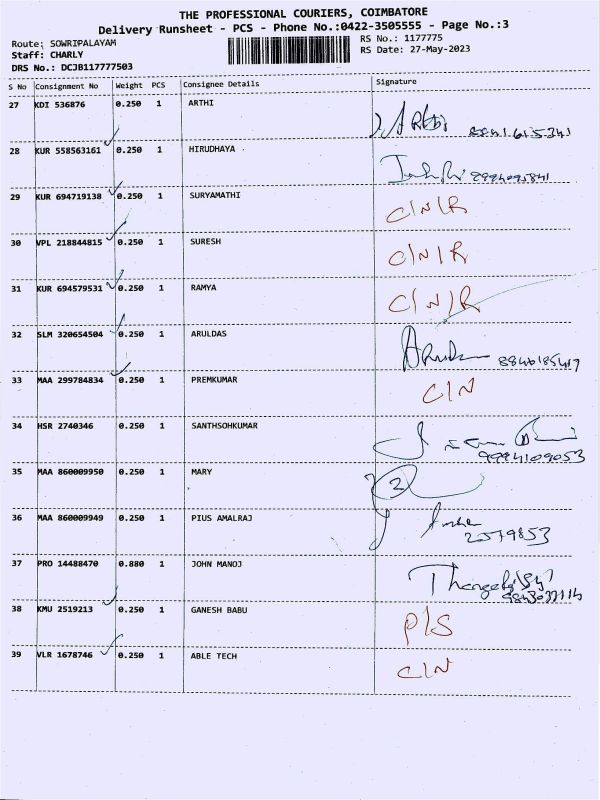 THE PROFESSIONAL COURIERS, COIMBATORE
Delivery Runsheet - PCS - Phone No.:0422-3505555 - Page No.:3
Route: SOWRIPALAYAM
RS No.: 1177775
Staff: CHARLY
RS Date: 27-May-2023
DRS No.: DCJB117777503
S No Consignment No Weight PCS Consignee Details Signature
27 KDI 536876 0.250 1 ARTHI
28 KUR 558563161 0.250 1 HIRUDHAYA
29 KUR 694719138 0.250 1 SURYAMATHI C/N/R
30 VPL 218844815 0.250 1 SURESH C/N/R
31 KUR 694579531 0.250 1 RAMYA C/N/R
32 SLM 320654504 0.250 1 ARULDAS
33 MAA 299784834 0.250 1 PREMKUMAR C/N
34 HSR 2740346 0.250 1 SANTHSOHKUMAR 9994109053
35 MAA 860009950 0.250 1 MARY 2
36 MAA 860009949 0.250 1 PIUS AMALRAJ
37 PRO 14488470 0.880 1 JOHN MANOJ
38 KMU 2519213 0.250 1 GANESH BABU P/S
39 VLR 1678746 0.250 1 ABLE TECH C/N